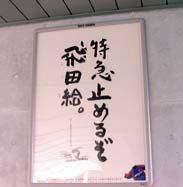 特急止めるぞ
飛田給。